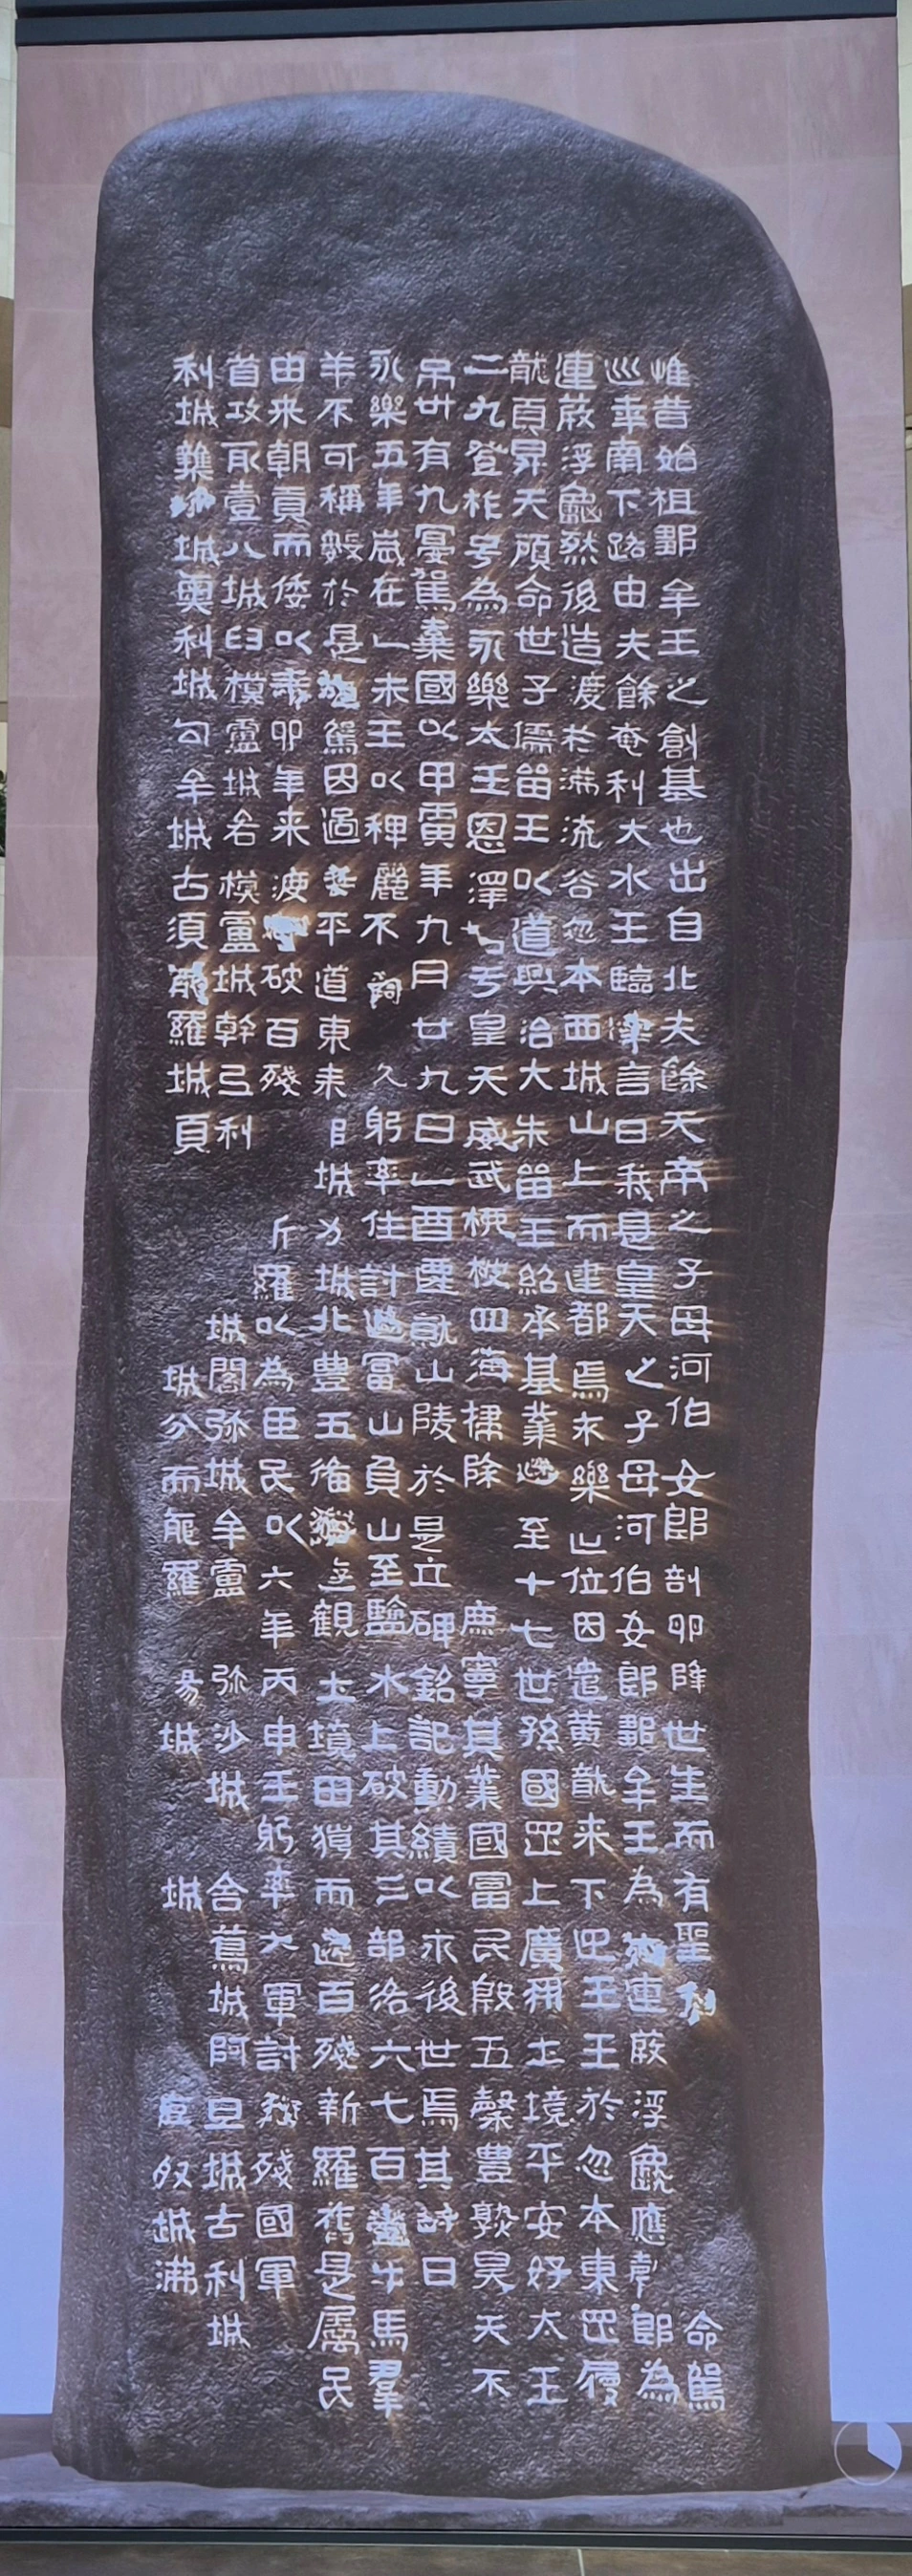 惟昔始祖鄒牟王之創基也出自北夫餘天帝之子母河伯女郎剖卵降世生而有聖命駕
巡幸南下路由夫餘奄利大水王臨津言曰我是皇天之子母河伯女郎鄒牟王為我連葭浮龜應聲即為
連葭浮龜然後造渡於沸流谷忽本西城山上而建都焉不樂世位因遣黃龍来下迎王王於忽本東罡履
龍頁昇天顧命世子儒留王以道興治大朱留王紹承基業遝至十七世孫國罡上廣開土境平安好太王
二九登祚号為永樂太王恩澤洽于皇天威武振被四海掃除庶寧其業國富民殷五穀豊熟昊天不
弔卅有九寔駕棄國以甲寅年九月廿九日乙酉遷就山陵於是立碑銘記勳績以示後世焉其詞曰
永樂五年歲在乙未王以稗麗不久躬率住討過富山負山至鹽水上破其三部洛六七百營牛馬羣
羊不可稱數於是旋駕因過襄平道東来城力城北豊五備遊觀土境田獵而還百殘新羅舊是屬民
由来朝貢而倭以辛卯年来渡破百殘斤羅以為臣民以六年丙申王躬率大軍討殘國軍
首攻取壹八城臼模盧城各模盧城幹弖利城閣弥城牟盧弥沙城合舃城阿旦城古利城
利城雜城奧利城勾牟城古須羅城頁城分而能羅昜城城城沸